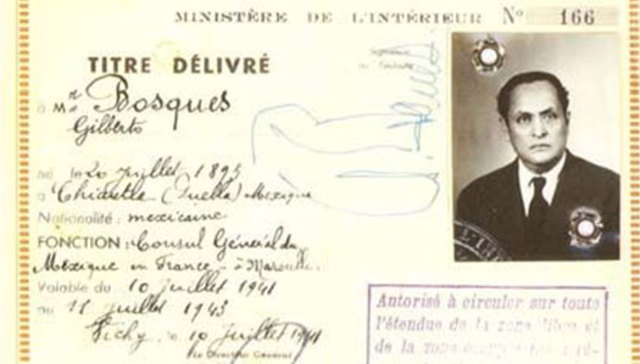 MINISTÈRE DE L'INTÉRIEUR Nº 166
TITRE DÉLIVRÉ
à Mr Bosques
Gilberto
né le 20 juillet 1893
à Chiautla (Puebla) Mexique
Nationalité : mexicaine
FONCTION : Consul Général du
Mexique en France - à Marseille.
Valable du 10 juillet 1941
au 11 juillet 1943
Vichy, le 10 juillet 1941
Le Directeur Général
Signature
du Titulaire
Autorisé à circuler sur toute
l'étendue de la zone libre et
de la zone